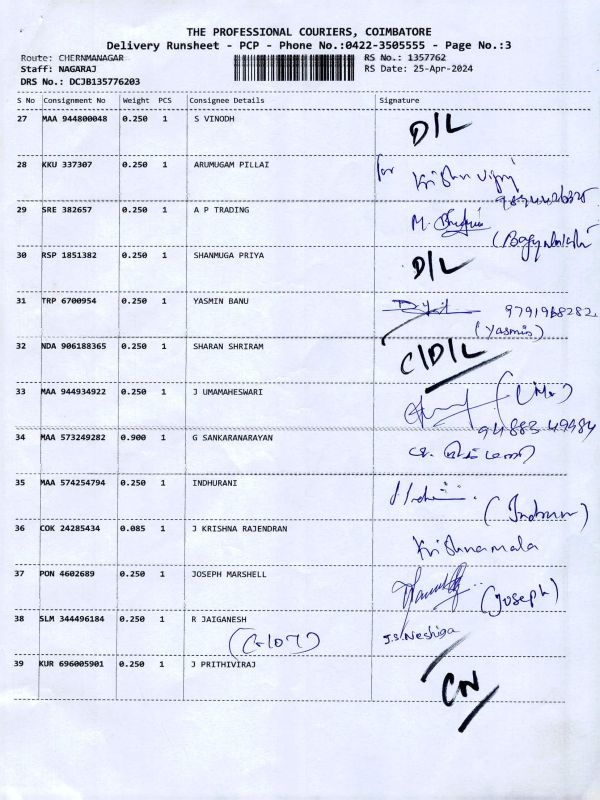 THE PROFESSIONAL COURIERS, COIMBATORE
Delivery Runsheet - PCP - Phone No.:0422-3505555 - Page No.:3
Route: CHERNMANAGAR RS No.: 1357762
Staff: NAGARAJ RS Date: 25-Apr-2024
DRS No.: DCJB135776203
S No Consignment No Weight PCS Consignee Details Signature
27 MAA 944800048 0.250 1 S VINODH D/L
28 KKU 337307 0.250 1 ARUMUGAM PILLAI for
29 SRE 382657 0.250 1 A P TRADING M.
30 RSP 1851382 0.250 1 SHANMUGA PRIYA D/L
31 TRP 6700954 0.250 1 YASMIN BANU 9791968282
(Yasmin)
32 NDA 906188365 0.250 1 SHARAN SHRIRAM C/D/L
33 MAA 944934922 0.250 1 J UMAMAHESWARI (Uma)
94883 49984
34 MAA 573249282 0.900 1 G SANKARANARAYAN
35 MAA 574254794 0.250 1 INDHURANI
36 COK 24285434 0.085 1 J KRISHNA RAJENDRAN Krishnamala
37 PON 4602689 0.250 1 JOSEPH MARSHELL (Joseph)
38 SLM 344496184 0.250 1 R JAIGANESH J.S.Neshiga
(G-107)
39 KUR 696005901 0.250 1 J PRITHIVIRAJ CN